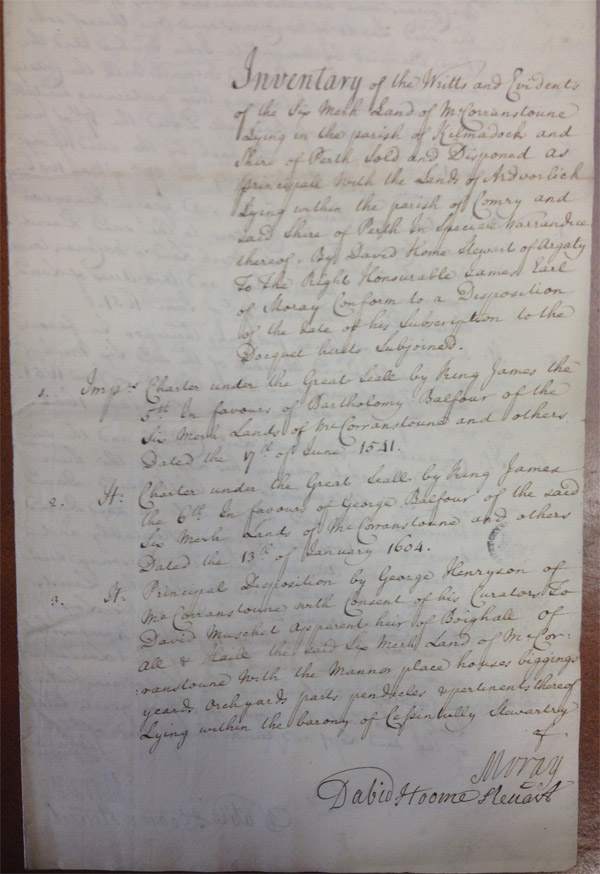 Inventary of the Writts and Evidents
of the Six Merk Land of McCorranstoune
Lying in the parish of Kilmadock and
Shire of Perth Sold and Disponed as
principall With the Lands of Ardvorlich
Lying within the parish of Comry and
said Shire of Perth In Speciale Warrandice
thereof. By David Home Stewart of Argaty
To The Right Honourable James Earl
of Moray Conform to a Disposition
of the date of his Subscription to the
Docquet hereto Subjoined.
1. Impris Charter under the Great Seall by King James the
5th In favours of Bartholomy Balfour of the
Six Merk Lands of McCorranstoune and others
Dated the 17th of June 1541.
2. It: Charter under the Great Seall by King James
the 6th In favours of George Balfour of the said
Six Merk Lands of McCorranstoune and others
Dated the 13th of January 1604.
3. It: Principal Disposition by George Henryson of
McCorranstoune with Consent of his Curators To
David Muschet Apparent heir of Boighall of
All & Haill the said Six Merk Land of McCor-
:ranstoune With the Mannor place houses biggings
yeards Orchyards parts pendicles & pertinents thereof
Lying within the barony of Cessintully Stewartry
of
Moray
David Hoome Steuart